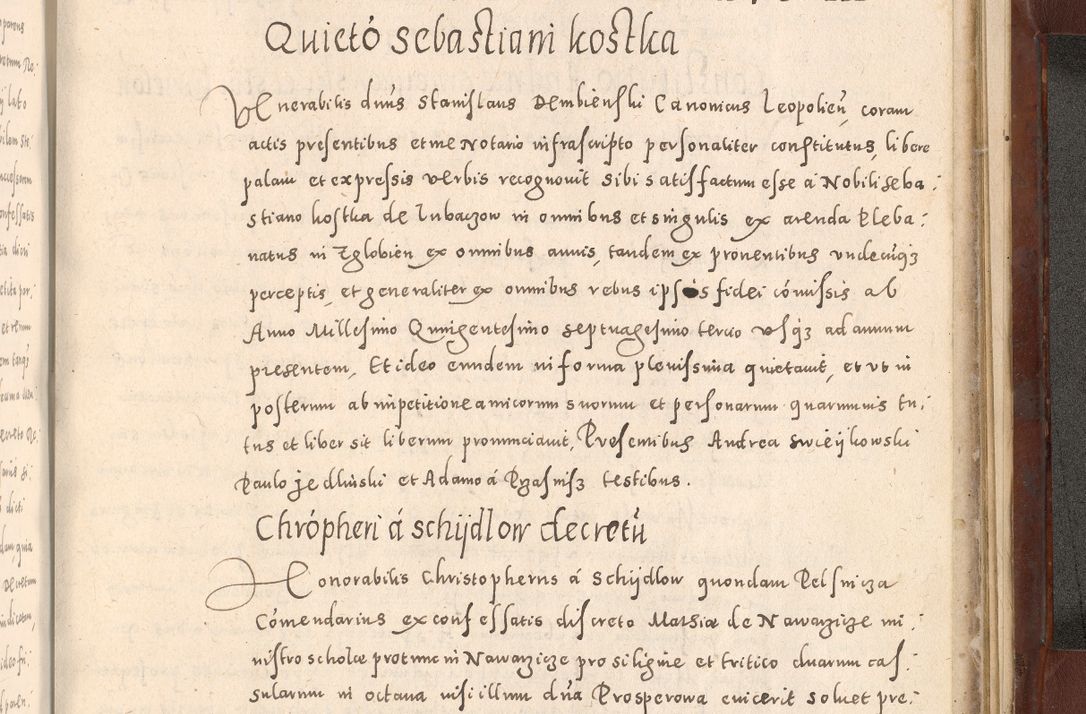 Quietó sebastiani kostka
Venerabilis dnüs Stanislaus Dembienski Canonicus Leopolieñ, coram
actis presentibus et me Notario infrascripto personaliter constitutus, libere
palam et expressis verbis recognovit sibi satisfactum esse á Nobili Seba:
stiano kostka de Lubaczow in omnibus et singulis ex arenda Pleba:
natus in Zglobien ex omnibus annis, tandem ex proventibus undecüq3
perceptis, et generaliter ex omnibus rebus ipsos fidei cómissis ab
Anno Millesimo Quingentesimo septuagesimo tercio usq3 ad annum
presentem, Et ideo eundem in forma plenissima quietavit, et ut in
posterum ab impetitione amicorum suorum et personarum quarumvis tu:
tus et liber sit liberum pronunciavit, Presentibus Andrea Swieijkowski
Paulo jedlinski et Adamo á testibus.
Chrópheri á schijdlow decretü
Honorabilis Christopherus á Schijdlow quondam Pelsnicza
Cómendarius ex confessatis discreto Mathiæ de Nawarzicze mi:
nistro scholæ protunc in Nawarzicze pro siligine et tritico duarum cas:
sularum in octava nisi illum dña Prosperowa evicerit solvet pre: